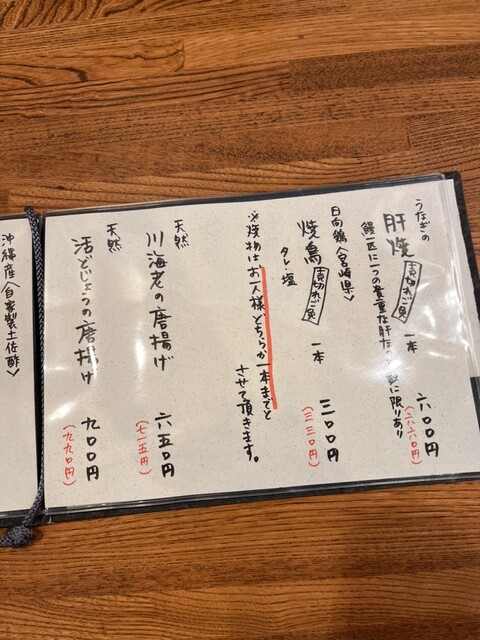 うなぎの
肝焼 売切れご免 一本 六〇〇円
(六六〇円)
鰻一匹に一つの貴重な肝なので数に限りあり
日向鶏〈宮崎県〉
焼鳥 売切れご免 一本 三〇〇円
(三三〇円)
タレ・塩
※焼物はお一人様どちらか一本までと
させて頂きます。
天然
川海老の唐揚げ 六五〇円
(七一五円)
天然
活どじょうの唐揚げ 九〇〇円
(九九〇円)
沖縄産〈自家製土佐酢〉